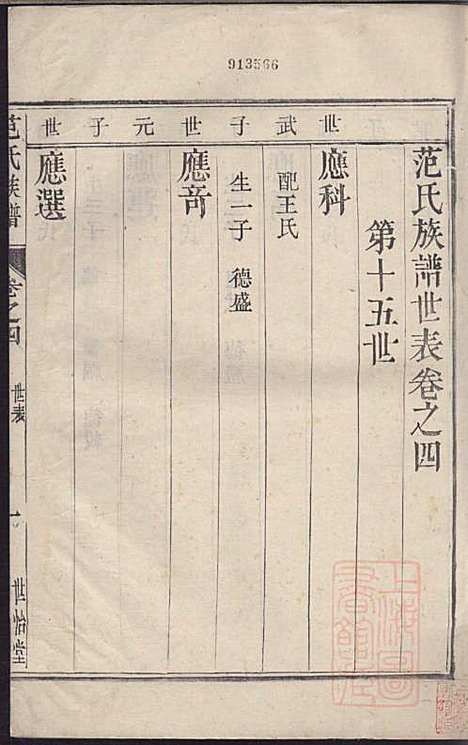 913566
范氏族譜世表卷之四
第十五世
世武子
應科
配王氏
生一子 德盛
世元子
應奇
世
應選
范氏族譜
卷之四
世表
一
世怡堂
上海圖書館藏